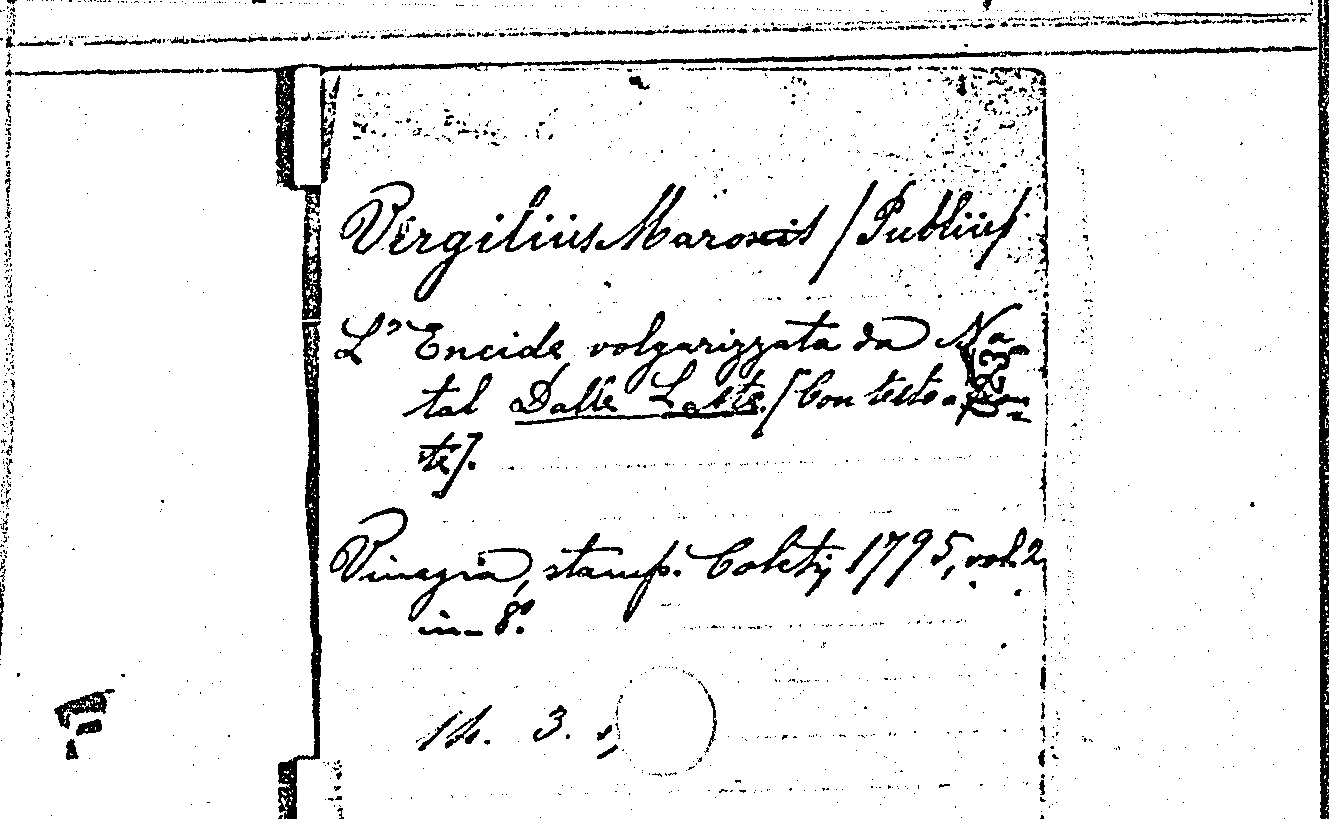 Vergilius Maro (Publius)
L'Eneide volgarizzata da Na
tal Dalle Laste. (Con testo a fron=
te).
Vinegia, stamp. Coleti, 1795, vol. 2.
in-8º.
14. 3.